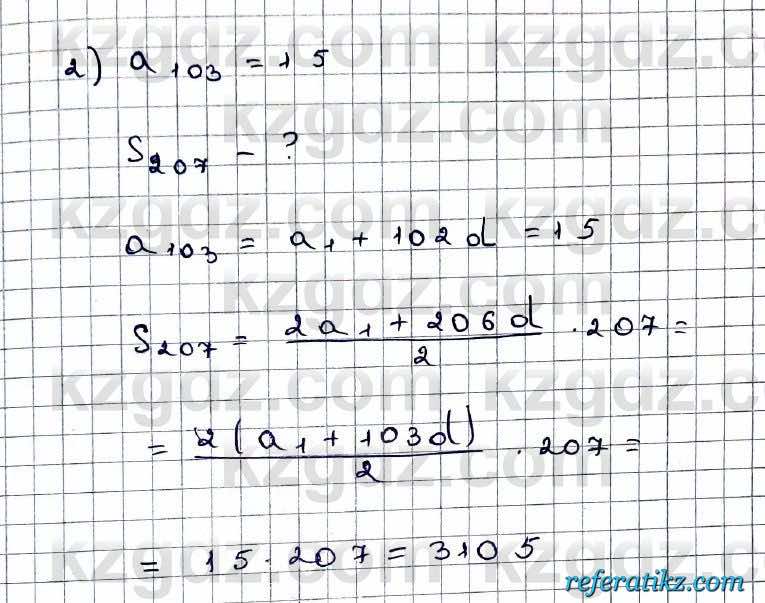 2) a₁₀₃ = 15
S₂₀₇ - ?
a₁₀₃ = a₁ + 102d = 15
S₂₀₇ = (2a₁ + 206d)/2 · 207 =
= 2(a₁ + 103d)/2 · 207 =
= 15 · 207 = 3105
kzgdz.com
referatikz.com